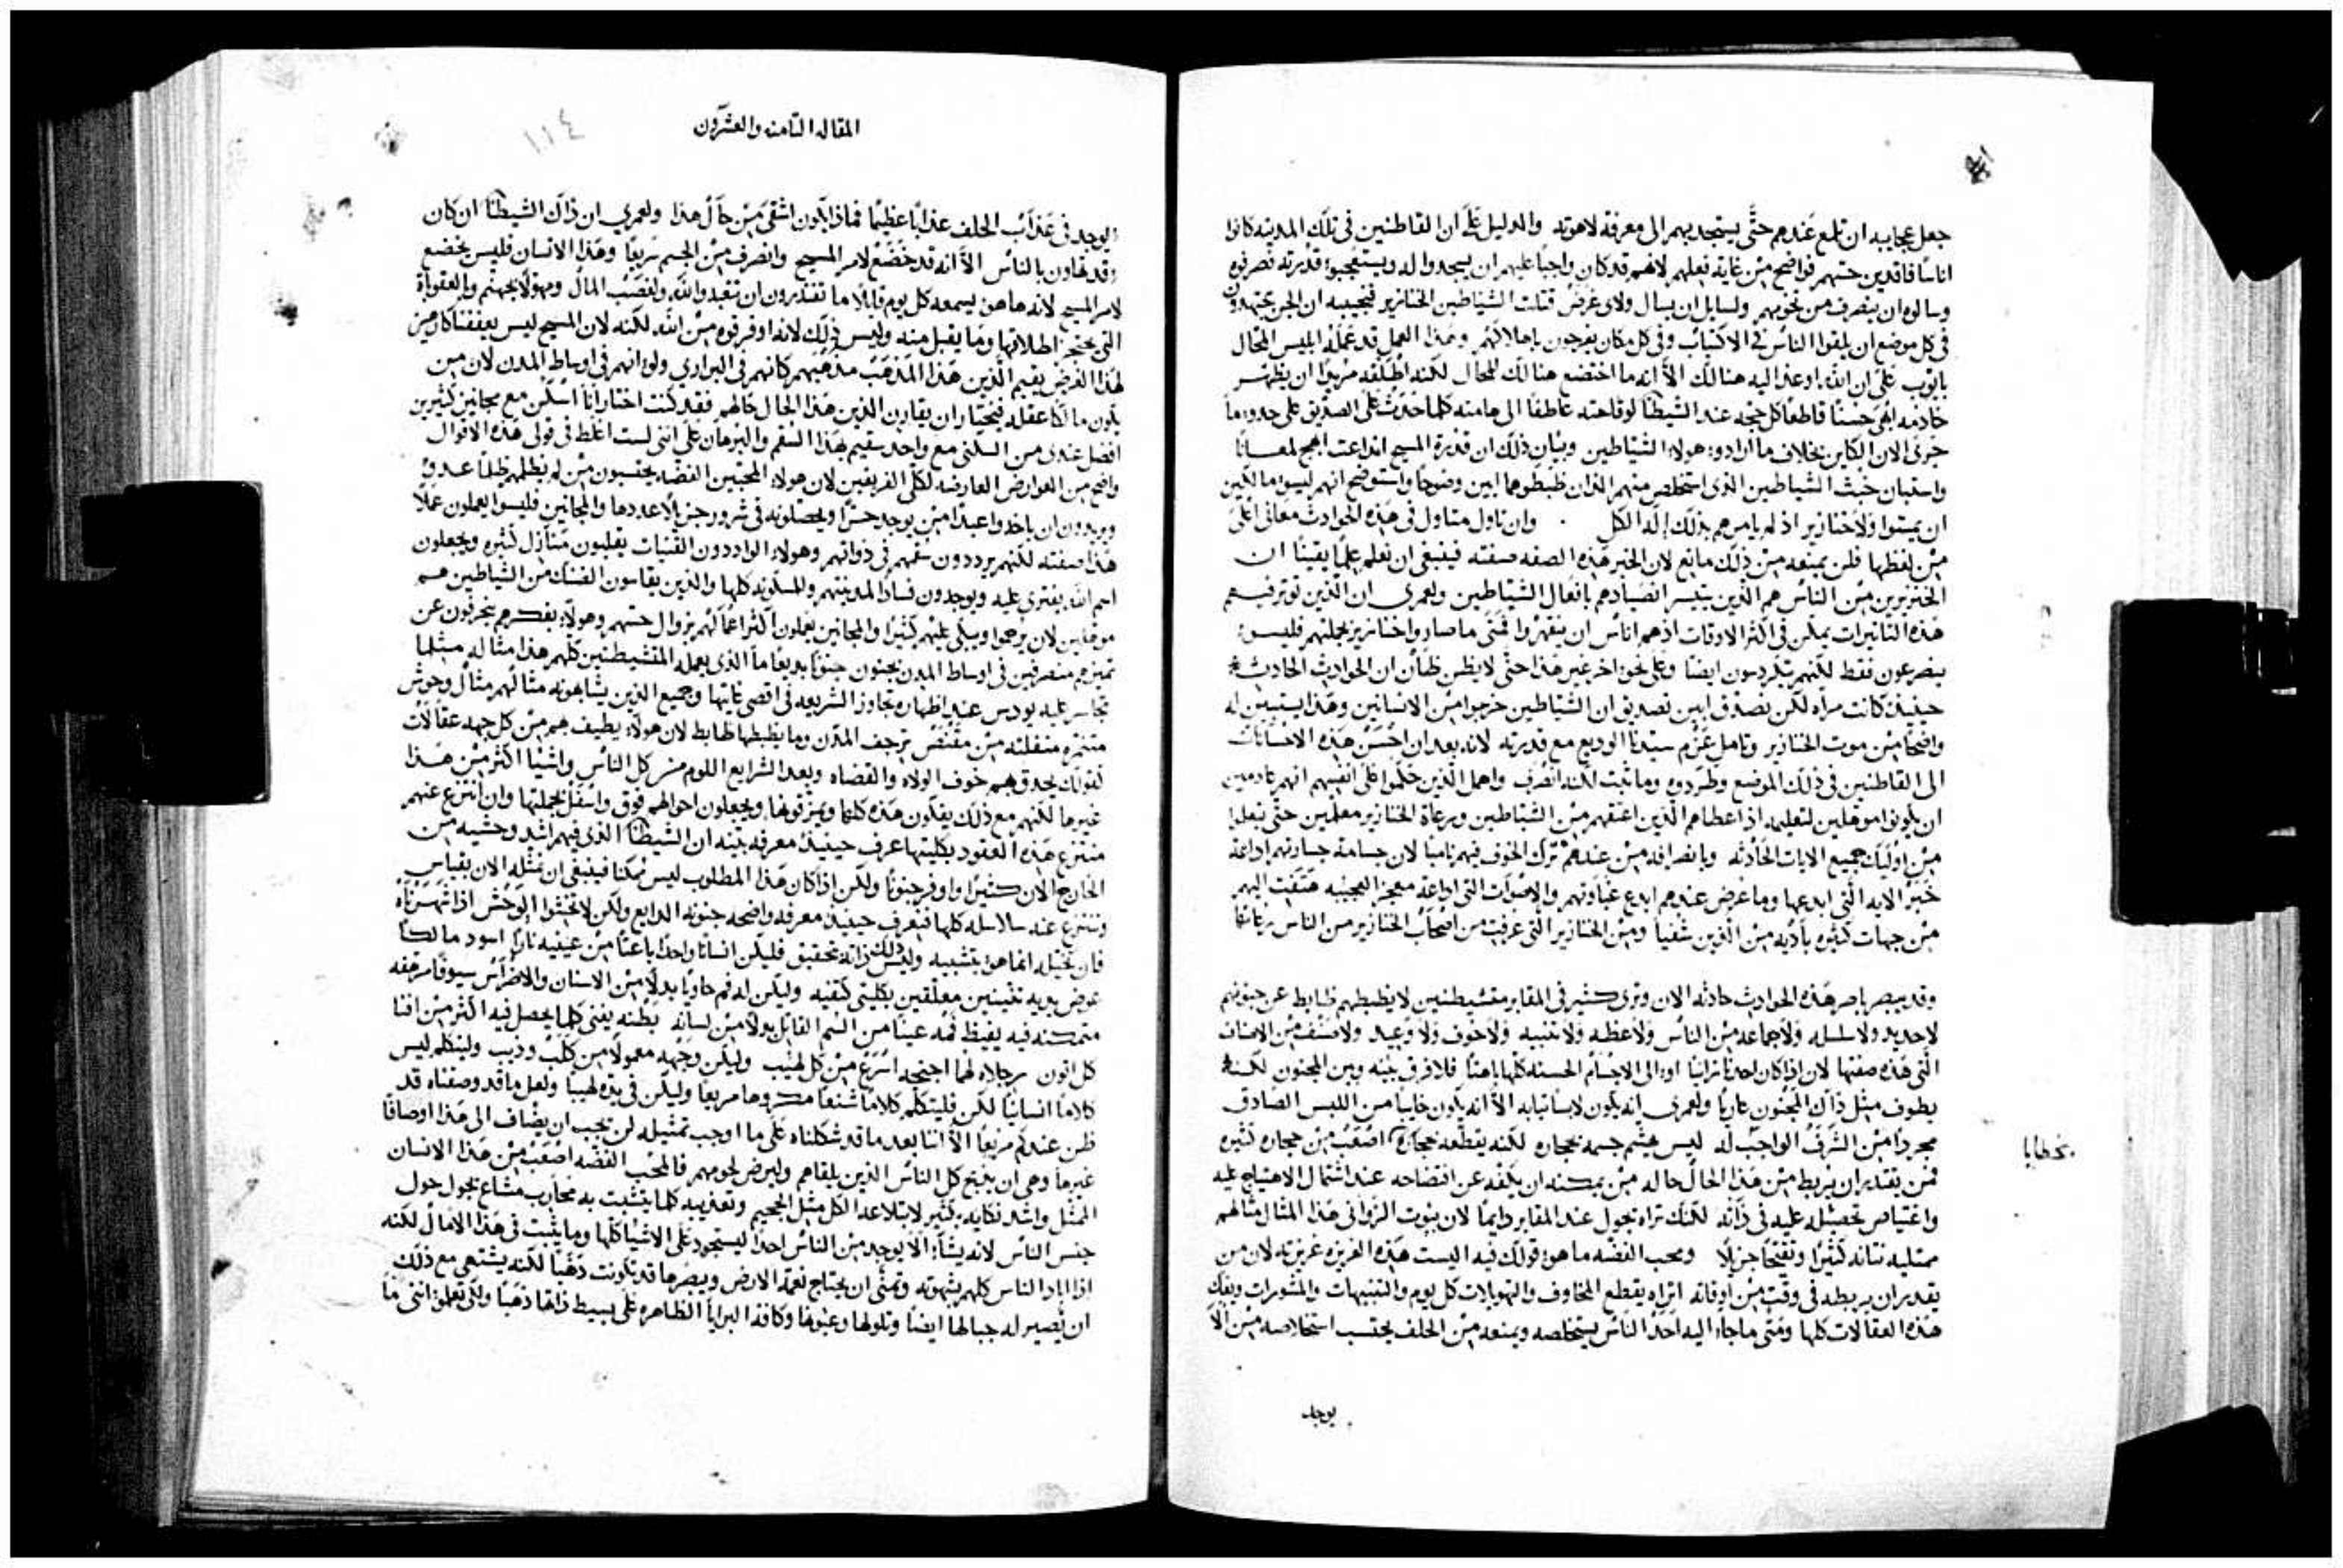 جعل عجايبه ان تلمع عندهم حتى يستجد بهم الى معرفة لاهوته والدليل على ان القاطنين في تلك المدينه كانوا
اناسًا فاقدين حسهم فواضح من غاية فعلهم لانهم قد كان واجبًا عليهم ان يسجدوا له ويستعجبوا قدرته فصرفوه
وسالوه ان ينصرف من تخومهم ولسايل ان يسال ولاي غرض قتلت الشياطين الخنازير فنجيبه ان الجن يجتهدون
في كل موضع ان يلقوا الناس في الاكتياب وفي كل مكان يفرحون باهلاكهم وهذا العمل قد عمله ابليس المحال
بايوب على ان الله اوعز اليه هنالك الا انه ما اختضع هنالك للمحال لكنه اطلقه مريدًا ان يظهر
خادمه ابهى حسنًا قاطعًا كل حجه عند الشيطان لوقاحته عاطفًا الى هامته كلما حدث على الصديق على حدو ما
جرى الان الكاين بخلاف ما ارادوه هولاء الشياطين وبيان ذلك ان قدرة المسيح اذاعت ابهج لمعانًا
واستبان خبث الشياطين الذي استخلص منهم اللذان ظبطوهما ابين وضوحًا واستوضح انهم ليسوا مالكين
ان يمسوا ولا خنازير اذ لم يامرهم بذلك إله الكل . وان تاول متاول في هذه الحوادث معاني اعلى
من لفظها فلن يمنعه من ذلك مانع لان الخبر هذه الصفه صفته فينبغي ان نعلم علمًا يقينًا ان
الخنزيرين من الناس هم الذين يتيسر انصيادهم بافعال الشياطين ولعمري ان الذين توثر فيهم
هذه التاثيرات يمكن في اكثر الاوقات اذ هم اناس ان يقهروا فمتى ما صاروا خنازير بجملتهم فليسوا
يصرعون فقط لكنهم يتكردسون ايضًا وعلى نحو اخر غير هذا حتى لا يظن ظان ان الحوادث الحادثه
حينيذ كانت مراه لكن نصدق ابين تصديق ان الشياطين خرجوا من الانسانين وهذا يستبين له
واضحًا من موت الخنازير وتامل عزم سيدنا الوديع مع قدرته لانه بعد ان احسن هذه الاحسانات
الى القاطنين في ذلك الموضع وطردوه وما ثبت لكنه انصرف واهمل الذين حكموا على انفسهم انهم عادمين
ان يكونوا موهلين لتعليمه اذ اعطاهم الذين اعتقهم من الشياطين ورعاة الخنازير معلمين حتى يتعلموا
من اوليك جميع الايات الحادثه وبانصرافه من عندهم ترك الخوف فيهم نامبًا لان جسامة خسارتهم اذاعة
خبر الايه التي ابدعها وما عرض عندهم ابدع غباوتهم والاصوات التي اذاعة معجز العجيبه هتفت اليهم
من جهات كثيره باديه من الذين شفيا ومن الخنازير التي غرقت من اصحاب الخنازير من الناس رعاتها
وقد يبصر باصر هذه الحوادث حادثه الان وترى كثير في المقابر متشيطنين لا يظبطهم ظابط عن جنونهم
لا حديد ولا سلسله ولا جماعة من الناس ولا عظه ولا تنبيه ولا خوف ولا وعيد ولا صنف من الاصناف
التي هذه صفتها لان اذا كان احد زانيًا الى الاجسام الحسنه كلها باهتًا فلا فرق بينه وبين المجنون لكنه
يطوف مثل ذاك المجنون عاريًا ولعمري انه يكون لابسًا ثيابه الا انه يكون خايبًا من اللبس الصادق
مجردًا من الشرف الواجب له ليس يهشم جسمه بحجاره لكنه يقطعه اصعب من حجاره كثيره
بخطايا
فمن يقتدر ان يربط من هذا الحال حاله من يمكنه ان يكفه عن افتضاحه عند اشتمال الاهتياج عليه
واعتياص تحصيله عليه في ذاته لكنك تراه يجول عند المقابر دايمًا لان بيوت الزواني هذا المثال مثالهم
ممتليه نتانه كثيرًا وتفتحًا جزيلًا ومحب الفضه ما هو قولك فيه اليست هذه الغريزه غريزته لان من
يقدر ان يربطه في وقت من اوقاته اتراه يقطع المخاوف والتهويلات كل يوم والتنبيهات والمشورات ويفك
هذه العقالات كلها ومتى ما جاء اليه احد الناس يستخلصه ويمنعه من الحلف يحتسب استخلاصه من الا
يوجد
المقاله الثامنه والعشرون
١١٤
يوجد في عذاب الحلف عذابًا عظيمًا فماذا يكون اشقى من حال هذا ولعمري ان ذاك الشيطان ان كان
قد تهاون بالناس الا انه قد خضع لامر المسيح وانصرف من الجسم سريعًا وهذا الانسان فليس يخضع
لامر المسيح لانه ها هو يسمعه كل يوم قايلًا ما تقتدرون ان تتعبدوا لله ولغضب المال ومهولًا بجهنم وبالعقوباة
التي يحتجز اطلاقها وما يقبل منه وليس ذلك لانه اوفر قوه من الله لكنه لان المسيح ليس يعففنا كارهين
لهذا الغرض يقيم الذين هذا المذهب مذهبهم كانهم في البراري ولو انهم في اوساط المدن لان من
يكون مالكًا عقله فيختار ان يقارن الذين هذا الحال حالهم فقد كنت اختار انا اسكن مع مجانين كثيرين
افضل عندي من السكنى مع واحد سقيم هذا السقم والبرهان على انني لست اغلط في قولي هذه الاقوال
واضح من العوارض العارضه لكلي الفريقين لان هولاء المحبين الفضه يحتسبون من لم يظلمهم ظلمًا عدو
ويريدون ان ياخدوا عبدًا من يوجد حرًا ويحصلونه في شرور جزيلًا عددها والمجانين فليسوا يعملون عملًا
هذا صفته لكنهم يرددون سقمهم في ذواتهم وهولاء الواددون القنيات يقلبون منازل كثيره ويجعلون
اسم الله يفترى عليه ويوجدون فسادًا لمدينتهم وللمسكونه كلها والذين يقاسون الفتك من الشياطين هم
موهلين لان يرحموا ويبكى عليهم كثيرًا والمجانين يعملون اكثر اعمالهم بزوال حسهم وهولاء بفكرهم ينحرفون عن
تميزهم منصرفين في اوساط المدن يجنون جنونًا بديعًا ما الذي يعمله المتشيطنين كلهم هذا مثاله مثلما
تجاسر عليه يودس عند اظهاره تجاوز الشريعه في اقصى غايتها وجميع الذين يشابهونه مثالهم مثال وحوش
متنمره منفلته من مقتنص ترجف المدن وما يظبطها ظابط لان هولاء يطيف بهم من كل جهه عقالات
كقولك يحدق بهم خوف الولاه والقضاه وبعد الشرايع اللوم من كل الناس واشيا اكثر من هذا
غيرها لكنهم مع ذلك يفكون هذه كلها ويمزقونها ويجعلون احوالهم فوق واسفل بجملتها وان انتزع عنهم
منتزع هذه العقود بكليتها عرف حينيذ معرفه بينه ان الشيطان الذي فيهم اشد وحشيه من
الخارج الان كثيرًا واوفر جنونًا ولكن اذا كان هذا المطلوب ليس ممكنًا فينبغي ان نمثله الان بقياس
وننتزع عنه سلاسله كلها فنعرف حينيذ معرفه واضحه جنونه الدايع ولكن لا تخشوا الوحش اذا شهرناه
فان تخيله انما هو بتشبيه وليس ذلك ذاته بتحقيق فليكن انسانًا واحدًا باعثًا من عينيه نارًا اسود مالكًا
عوض يديه تنينين معلقين بكليتي كتفيه وليكن له فم حاويًا بدلًا من الاسنان والاضراس سيوفًا مرهفه
متمكنه فيه يفيظ فمه عينًا من السم القاتل بدلًا من لسانه بطنه يفني كلما يحصل فيه اكثر من افنا
كل اتون رجلاه لهما اجنحه اسرع من كل لهيب وليكن وجهه معمولًا من كلب وذيب وليتكلم ليس
كلامًا انسانيًا لكن فليتكلم كلامًا شنعًا مكروهًا مريعًا وليكن في يده لهيبًا ولعل ما قد وصفناه قد
ظن عندكم مريعًا الا اننا بعد ما قد شكلناه على ما اوجب تمثيله لن يجب ان يضاف الى هذا اوصافًا
غيرها وهي ان يذبح كل الناس الذين يلقاهم وليرض لحومهم فالمحب الفضه اصعب من هذا الانسان
الممثل واشد نكايه بكثير لابتلاعه الكل مثل الجحيم وتعذيبه كلما يتشبت به محارب مشاع يجول حول
جنس الناس لانه يشآء الا يوجد من الناس احدًا ليستحوذ على الاشيا كلها وما يثبت في هذا الامال لكنه
اذا اباد الناس كلهم بشهوته وتمنى ان يحتاج نعمة الارض ويبصرها قد تكونت ذهبًا لكنه يشتهي مع ذلك
ان تصير له جبالها ايضًا وتلولها وعيونها وكافة البرايا الظاهره على بسيط ذاتها ذهبًا ولكي تعلموا انني ما